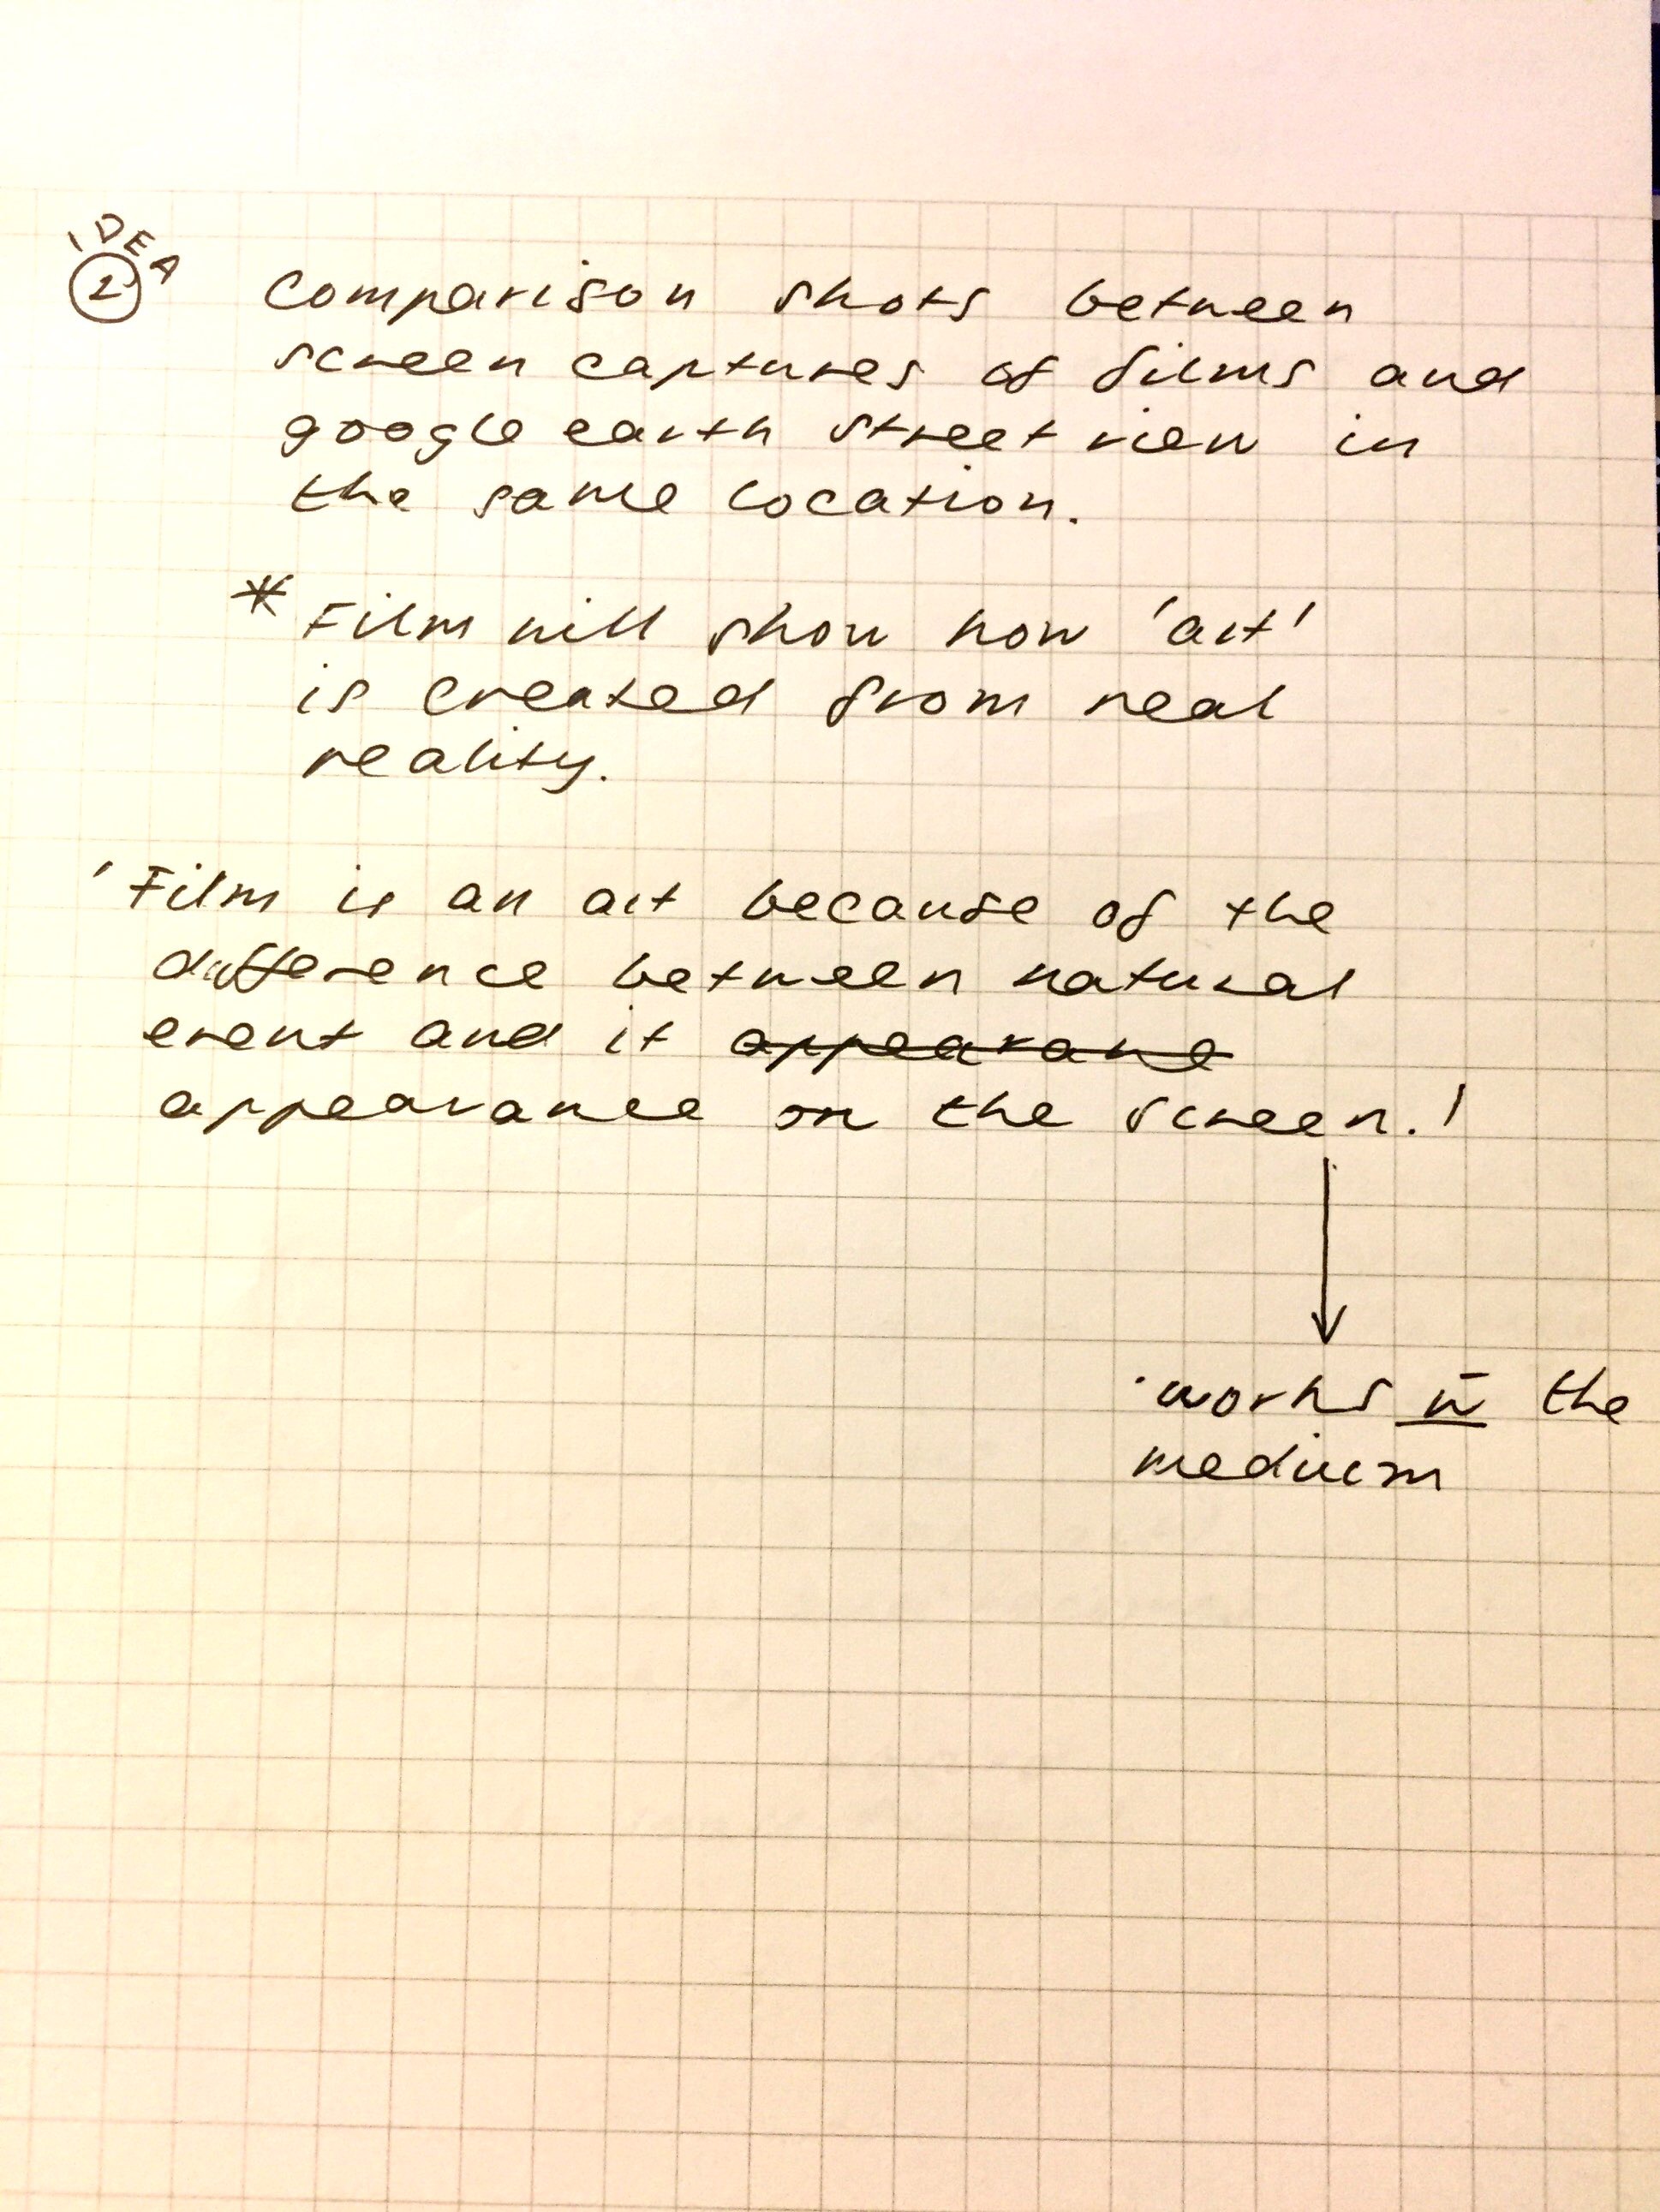 IDEA
2
Comparison shots between
screen captures of films and
google earth street view in
the same location.
* Film will show how 'art'
is created from real
reality.
'Film is an art because of the
difference between natural
event and it appearane
appearance on the screen.'
works in the
medium